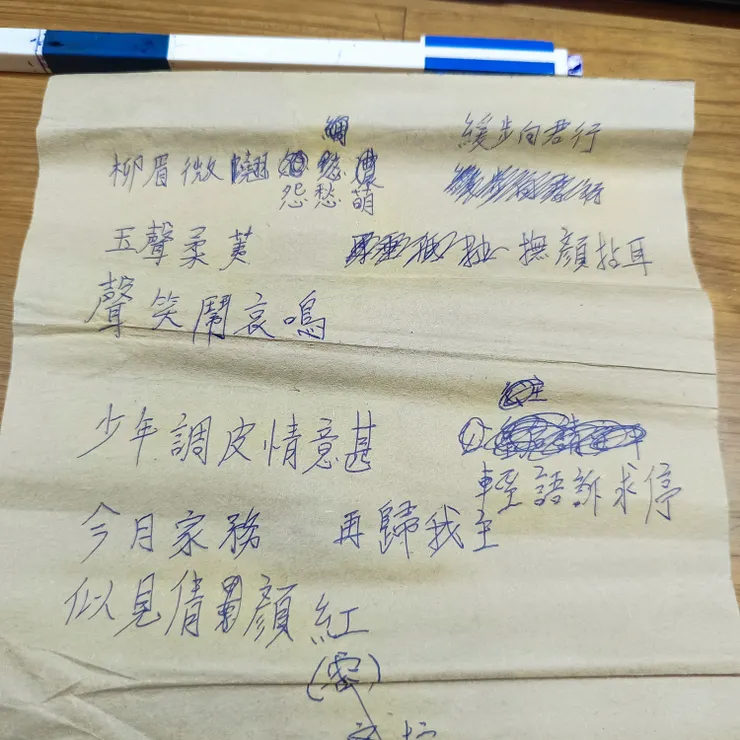 柳眉微 怨愁萌 緩步向君行
玉聲柔荑 撫顏拈耳
聲笑鬧哀鳴
少年調皮情意甚 輕語訴求停
今月家務 再歸我主
似見倩 顏紅